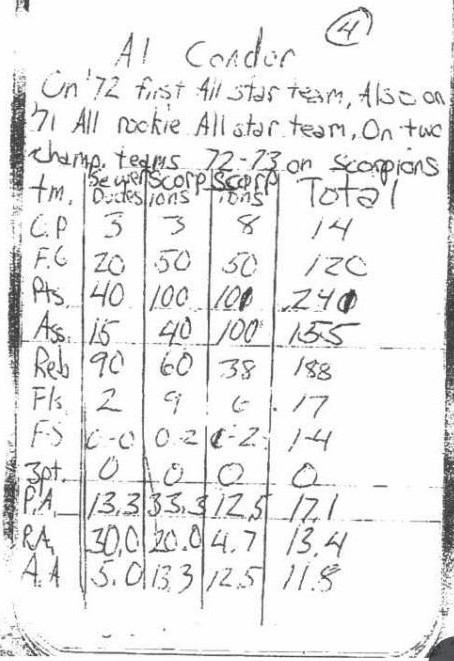 4
Al Condor
On '72 first All star team, Also on
'71 All rookie All star team, On two
champ. teams 72-73 on Scorpions
tm. Sewer Dudes Scorpions Scorpions Total
G.P 3 3 8 14
F.G 20 50 50 120
Pts. 40 100 101 241
Ass. 15 40 100 155
Reb 90 60 38 188
Fls 2 9 6 17
F-S 0-0 0-2 1-2 1-4
3pt. 0 0 0 0
P.A. 13.3 33.3 12.5 17.1
RA. 30.0 20.0 4.7 13.4
A.A 5.0 13.3 12.5 11.8